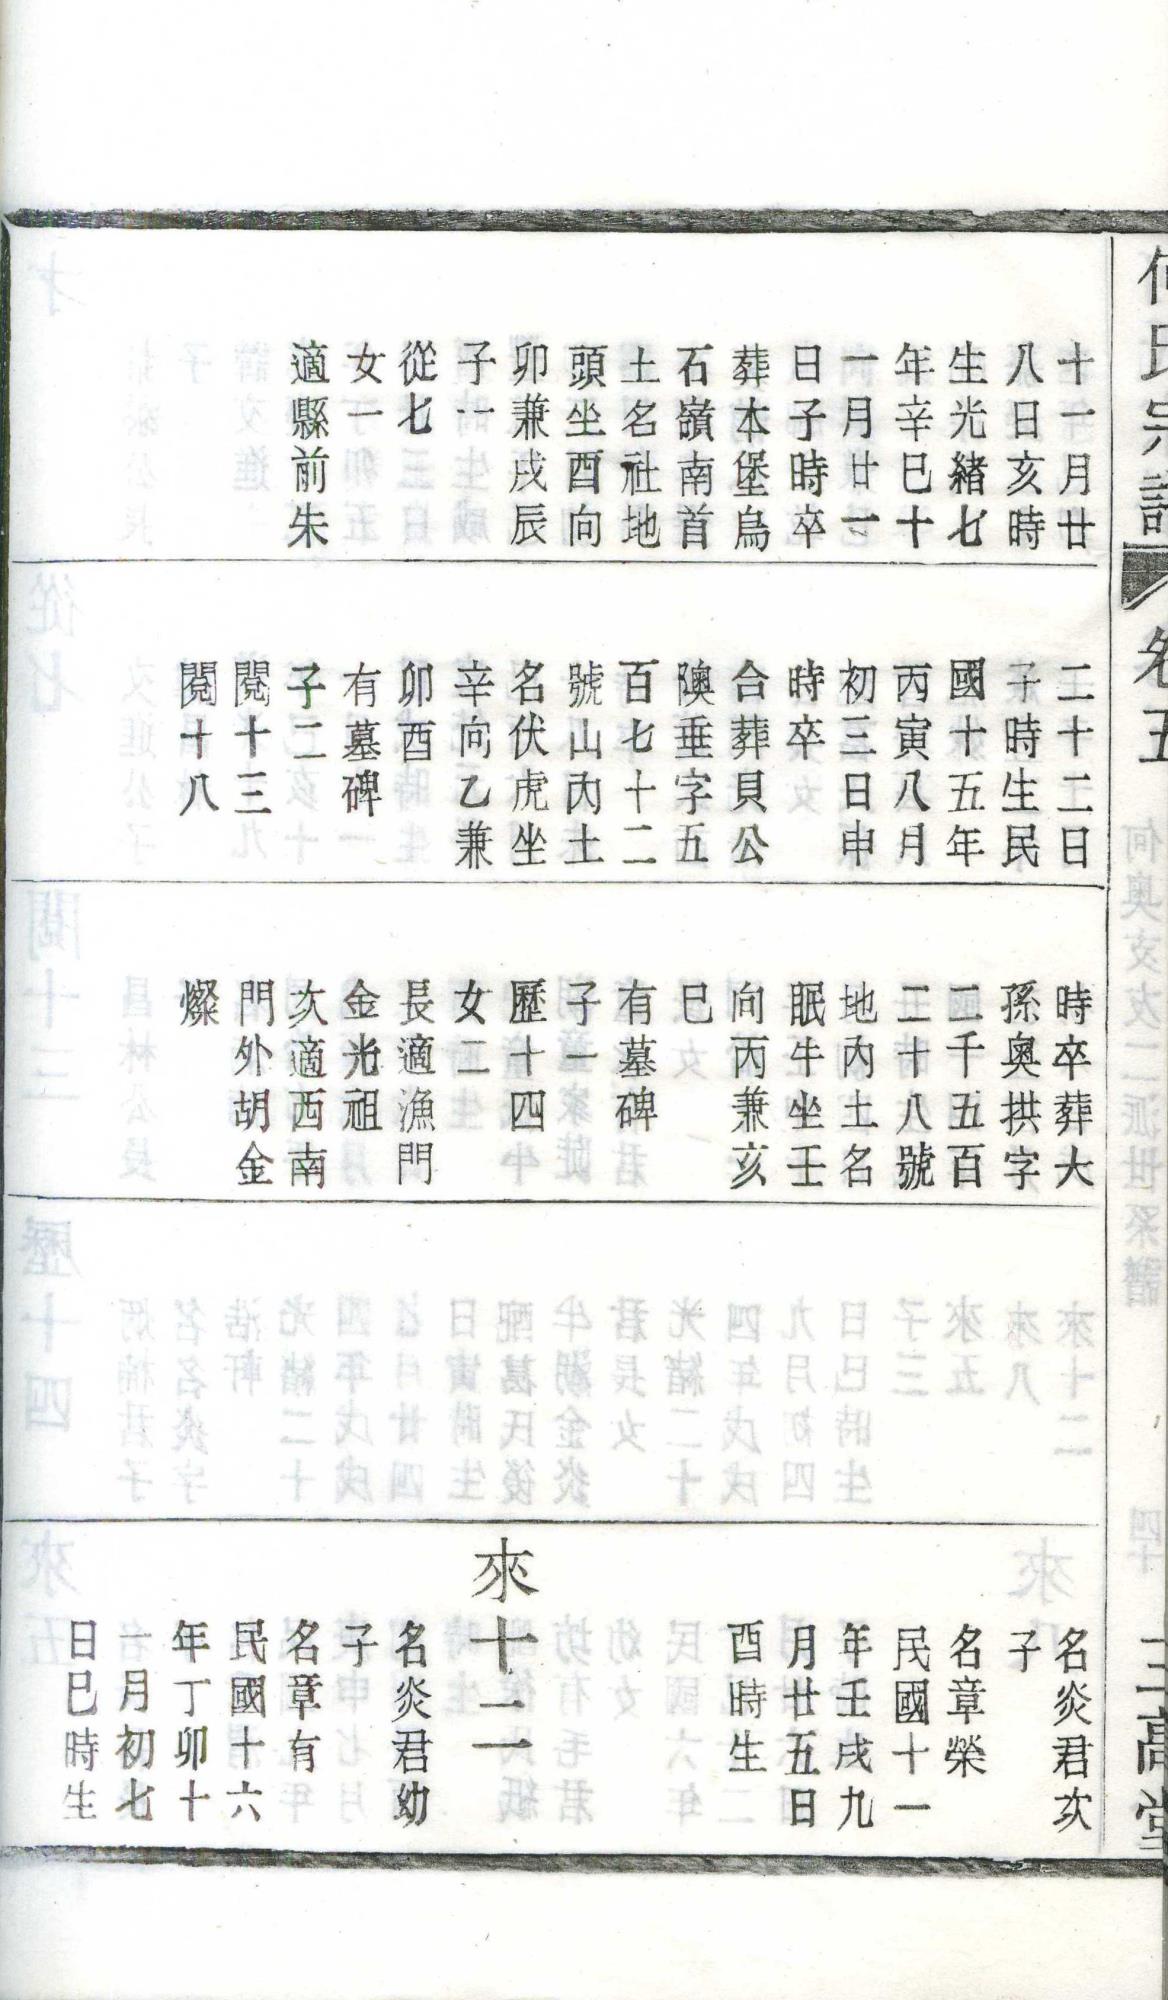 何氏宗譜
卷五
三高堂
十一月廿
八日亥時
生光緒七
年辛巳十
一月廿一
日子時卒
葬本堡烏
石嶺南首
土名社地
頭坐酉向
卯兼戌辰
子一
從七
女一
適縣前朱
二十二日
子時生民
國十五年
丙寅八月
初三日申
時卒
合葬貝公
隩垂字五
百七十二
號山內土
名伏虎坐
辛向乙兼
卯酉
有墓碑
子二
閱十三
閱十八
時卒葬大
孫奧拱字
二千五百
二十八號
地內土名
眠牛坐壬
向丙兼亥
巳
有墓碑
子一
歷十四
女二
長適漁門
金光祖
次適西南
門外胡金
燦
名炎君次
子
名章榮
民國十一
年壬戌九
月廿五日
酉時生
來十二
名炎君幼
子
名章有
民國十六
年丁卯十
一月初七
日巳時生